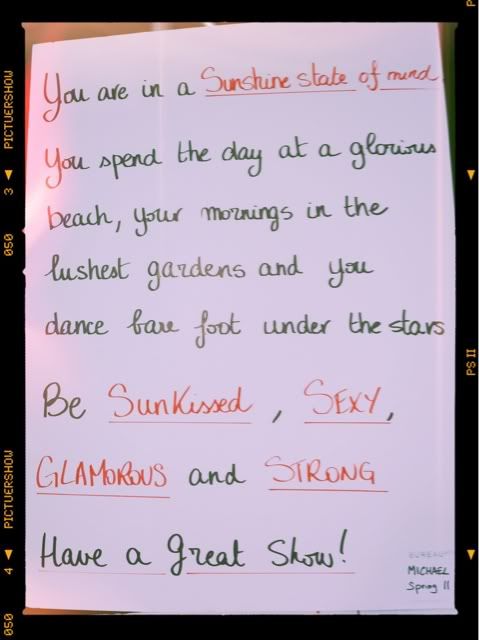 You are in a Sunshine state of mind
You spend the day at a glorious
beach, your mornings in the
lushest gardens and you
dance bare foot under the stars
Be SunKissed, SEXY,
GLAMOROUS and STRONG
Have a great Show!
BUREAU
MICHAEL
Spring 11
050
3 ◄ PICTUERSHOW
050
4 ◄ PICTUERSHOW
PS II